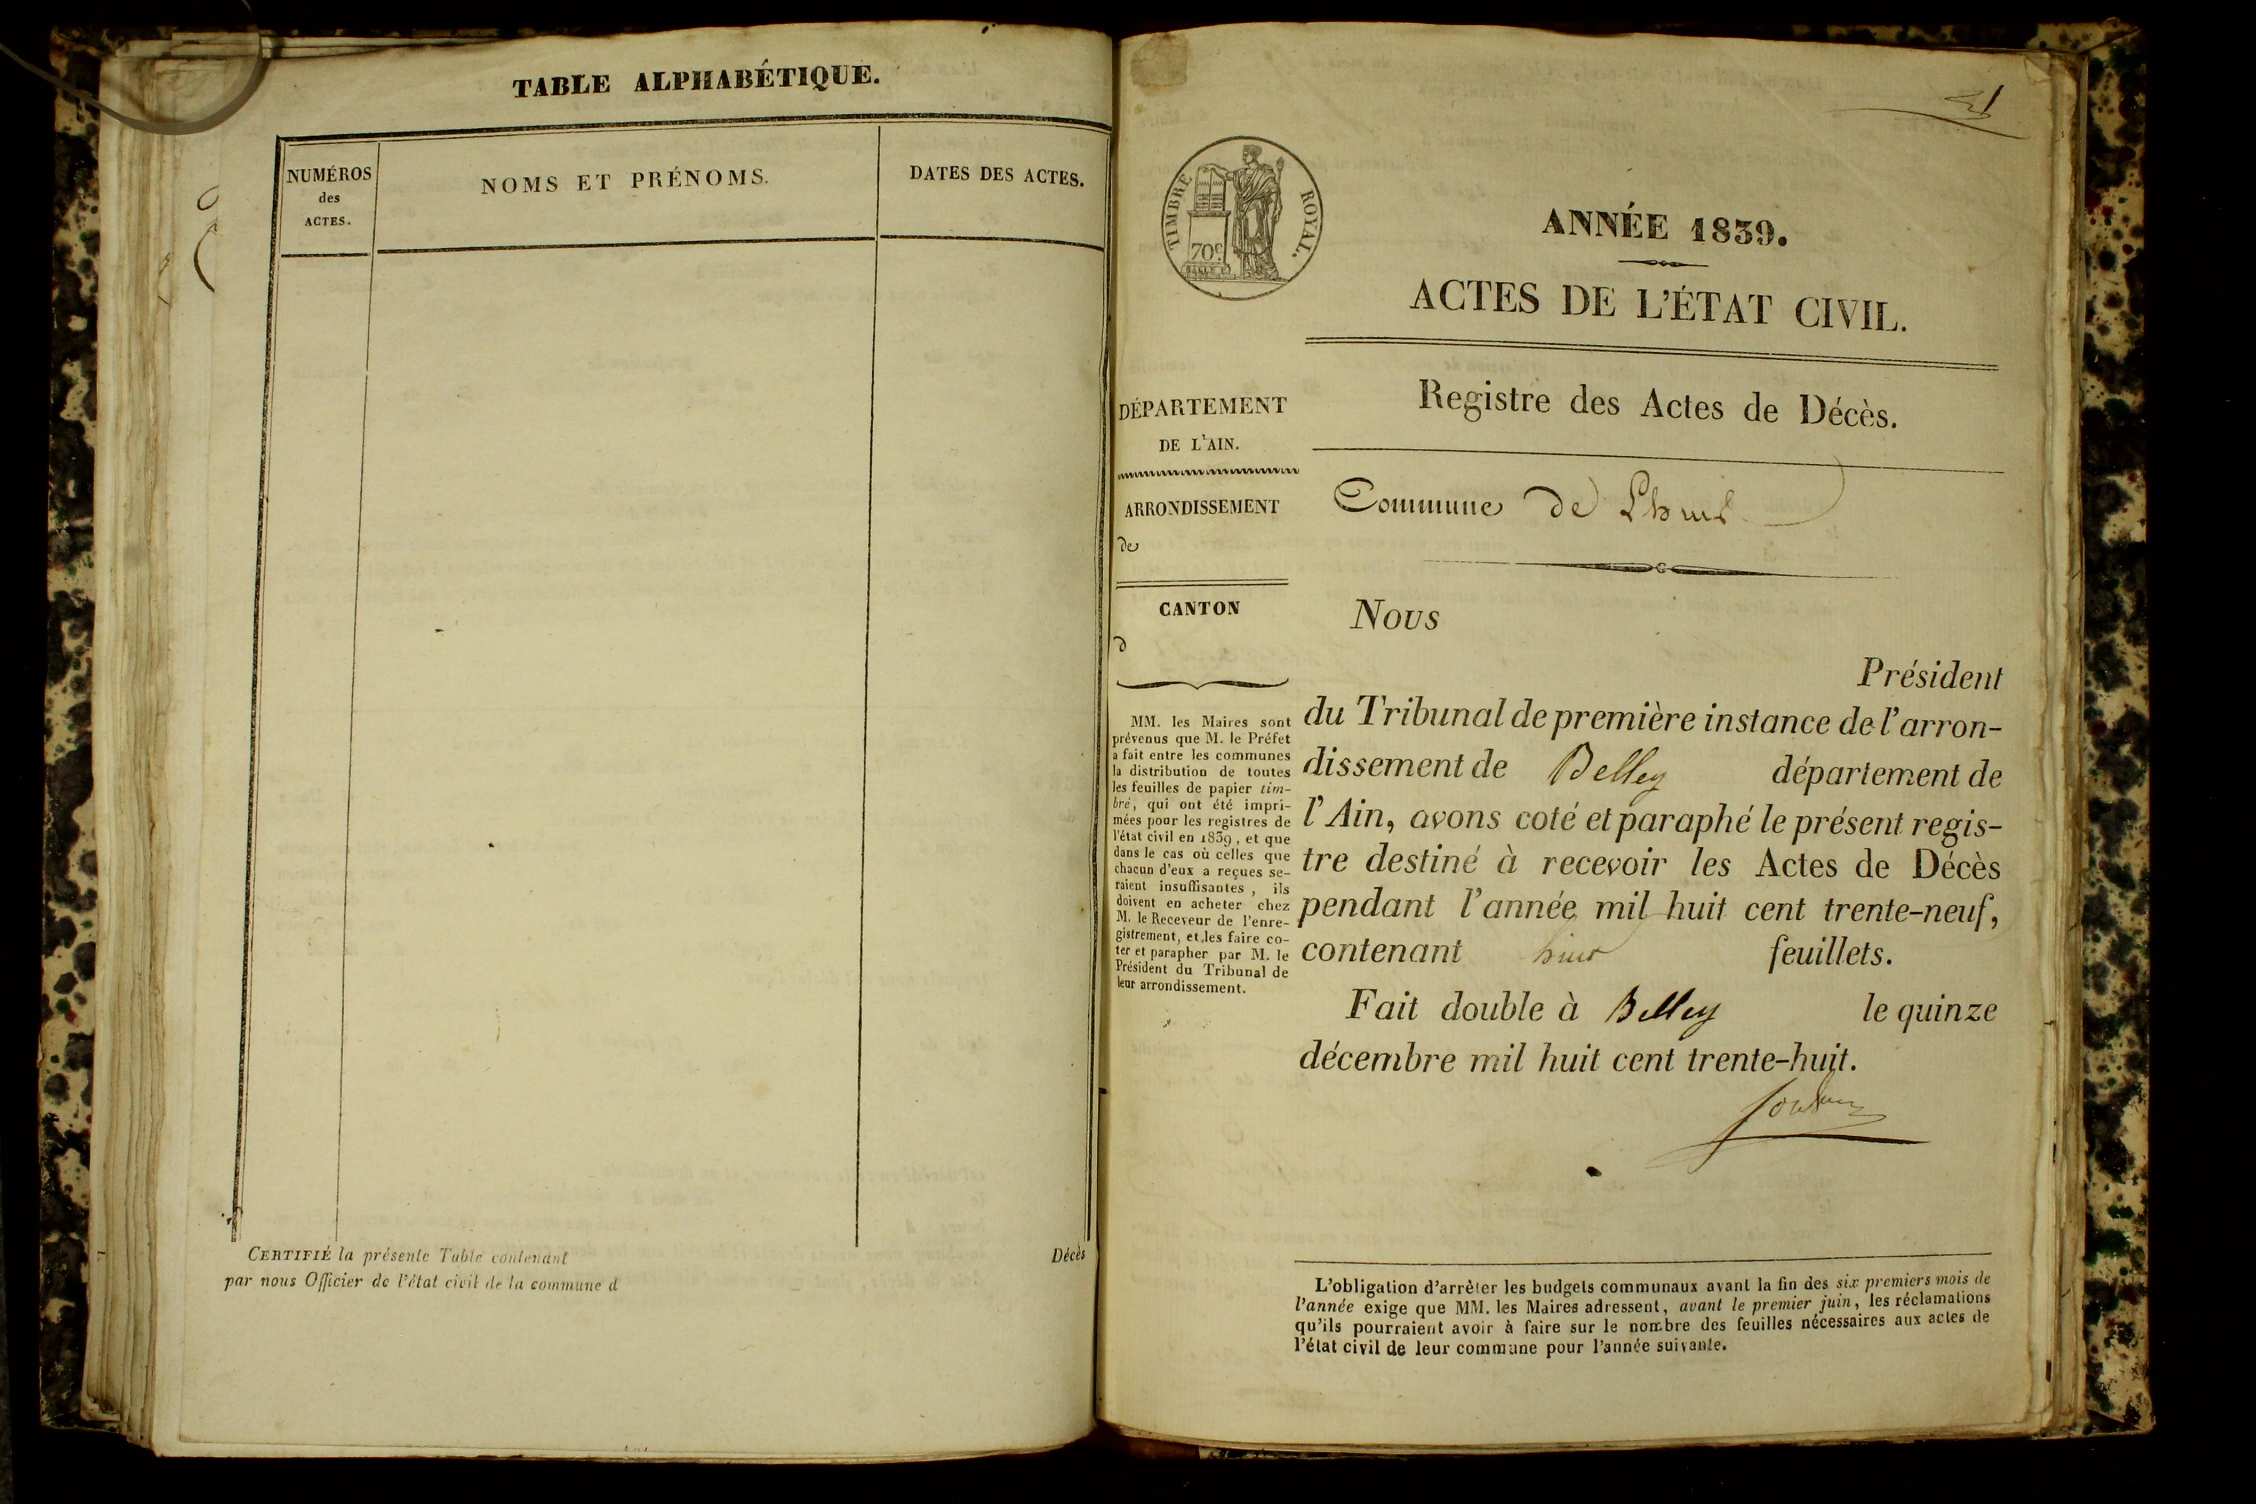 TABLE ALPHABÉTIQUE.
NUMÉROS
des
ACTES.
NOMS ET PRÉNOMS.
DATES DES ACTES.
CERTIFIÉ la présente Table contenant Décès
par nous Officier de l'état civil de la commune d
1
TIMBRE ROYAL.
70c.
ANNÉE 1839.
ACTES DE L'ÉTAT CIVIL.
Registre des Actes de Décès.
DÉPARTEMENT
DE L'AIN.
ARRONDISSEMENT
de
CANTON
d
MM. les Maires sont
prévenus que M. le Préfet
a fait entre les communes
la distribution de toutes
les feuilles de papier tim-
bré, qui ont été impri-
mées pour les registres de
l'état civil en 1839, et que
dans le cas où celles que
chacun d'eux a reçues se-
raient insuffisantes, ils
doivent en acheter chez
M. le Receveur de l'enre-
gistrement, et les faire co-
ter et parapher par M. le
Président du Tribunal de
leur arrondissement.
Commune de Lhuis
Nous
Président
du Tribunal de première instance de l'arron-
dissement de Belley département de
l'Ain, avons coté et paraphé le présent regis-
tre destiné à recevoir les Actes de Décès
pendant l'année mil huit cent trente-neuf,
contenant huit feuillets.
Fait double à Belley le quinze
décembre mil huit cent trente-huit.
L'obligation d'arrêter les budgets communaux avant la fin des six premiers mois de
l'année exige que MM. les Maires adressent, avant le premier juin, les réclamations
qu'ils pourraient avoir à faire sur le nombre des feuilles nécessaires aux actes de
l'état civil de leur commune pour l'année suivante.